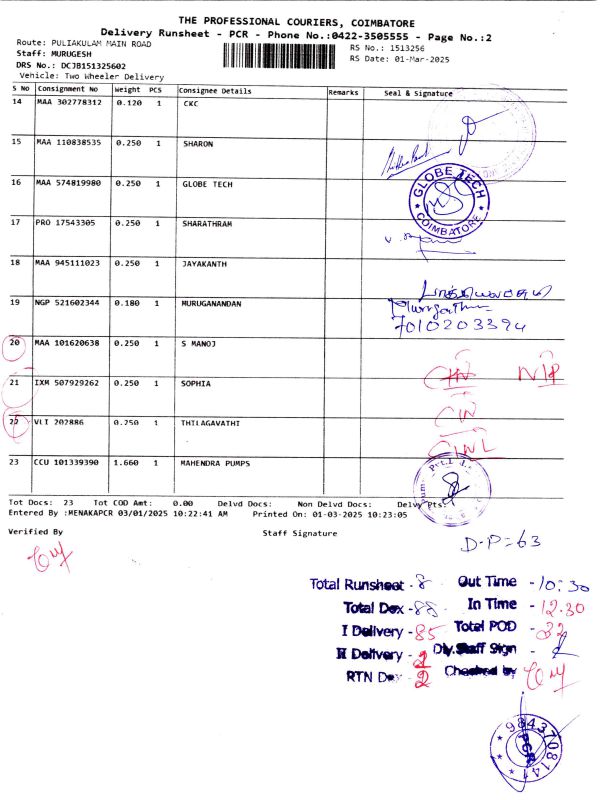 THE PROFESSIONAL COURIERS, COIMBATORE
Delivery Runsheet - PCR - Phone No.:0422-3505555 - Page No.:2
Route: PULIAKULAM MAIN ROAD
RS No.: 1513256
Staff: MURUGESH
RS Date: 01-Mar-2025
DRS No.: DCJB151325602
Vehicle: Two Wheeler Delivery
S No Consignment No Weight PCS Consignee Details Remarks Seal & Signature
14 MAA 302778312 0.120 1 CKC
15 MAA 110838535 0.250 1 SHARON
16 MAA 574819980 0.250 1 GLOBE TECH
GLOBE TECH
COIMBATORE
17 PRO 17543305 0.250 1 SHARATHRAM
18 MAA 945111023 0.250 1 JAYAKANTH
19 NGP 521602344 0.180 1 MURUGANANDAN
7010203394
20 MAA 101620638 0.250 1 S MANOJ
21 IXM 507929262 0.250 1 SOPHIA
22 VLI 202886 0.250 1 THILAGAVATHI
23 CCU 101339390 1.660 1 MAHENDRA PUMPS
Tot Docs: 23 Tot COD Amt: 0.00 Delvd Docs: Non Delvd Docs: Delvy Pts:
Entered By :MENAKAPCR 03/01/2025 10:22:41 AM Printed On: 01-03-2025 10:23:05
Verified By Staff Signature
D-P=63
Total Runsheet - 8 Out Time - 10:30
Total Dox - 88 In Time - 12.30
I Delivery - 85 Total POD -
II Delivery - Dly.Staff Sign -
RTN Dex - 2 Checked by
9843708141
PCR